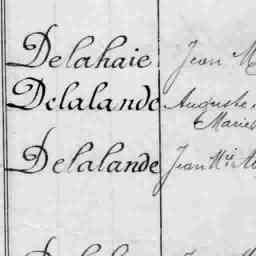 Delahaie Jean
Delalande Auguste
Marie
Delalande Jean